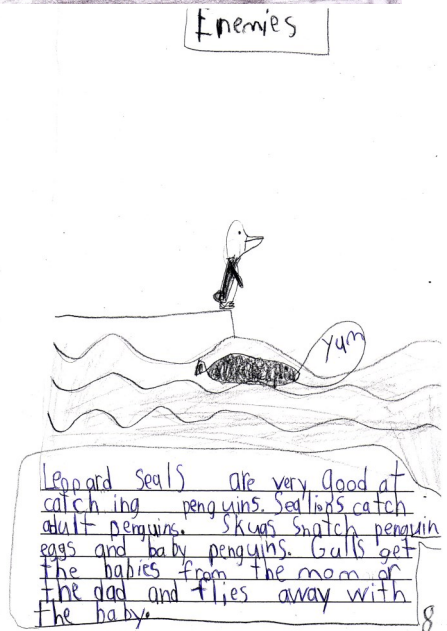 Enemies
Yum
Leopard Seals are very good at
catch ing penguins. Sealions catch
adult penguins. Skugs snatch penguin
eggs and baby penguins. Gulls get
the babies from the mom or
the dad and flies away with
the baby.
8